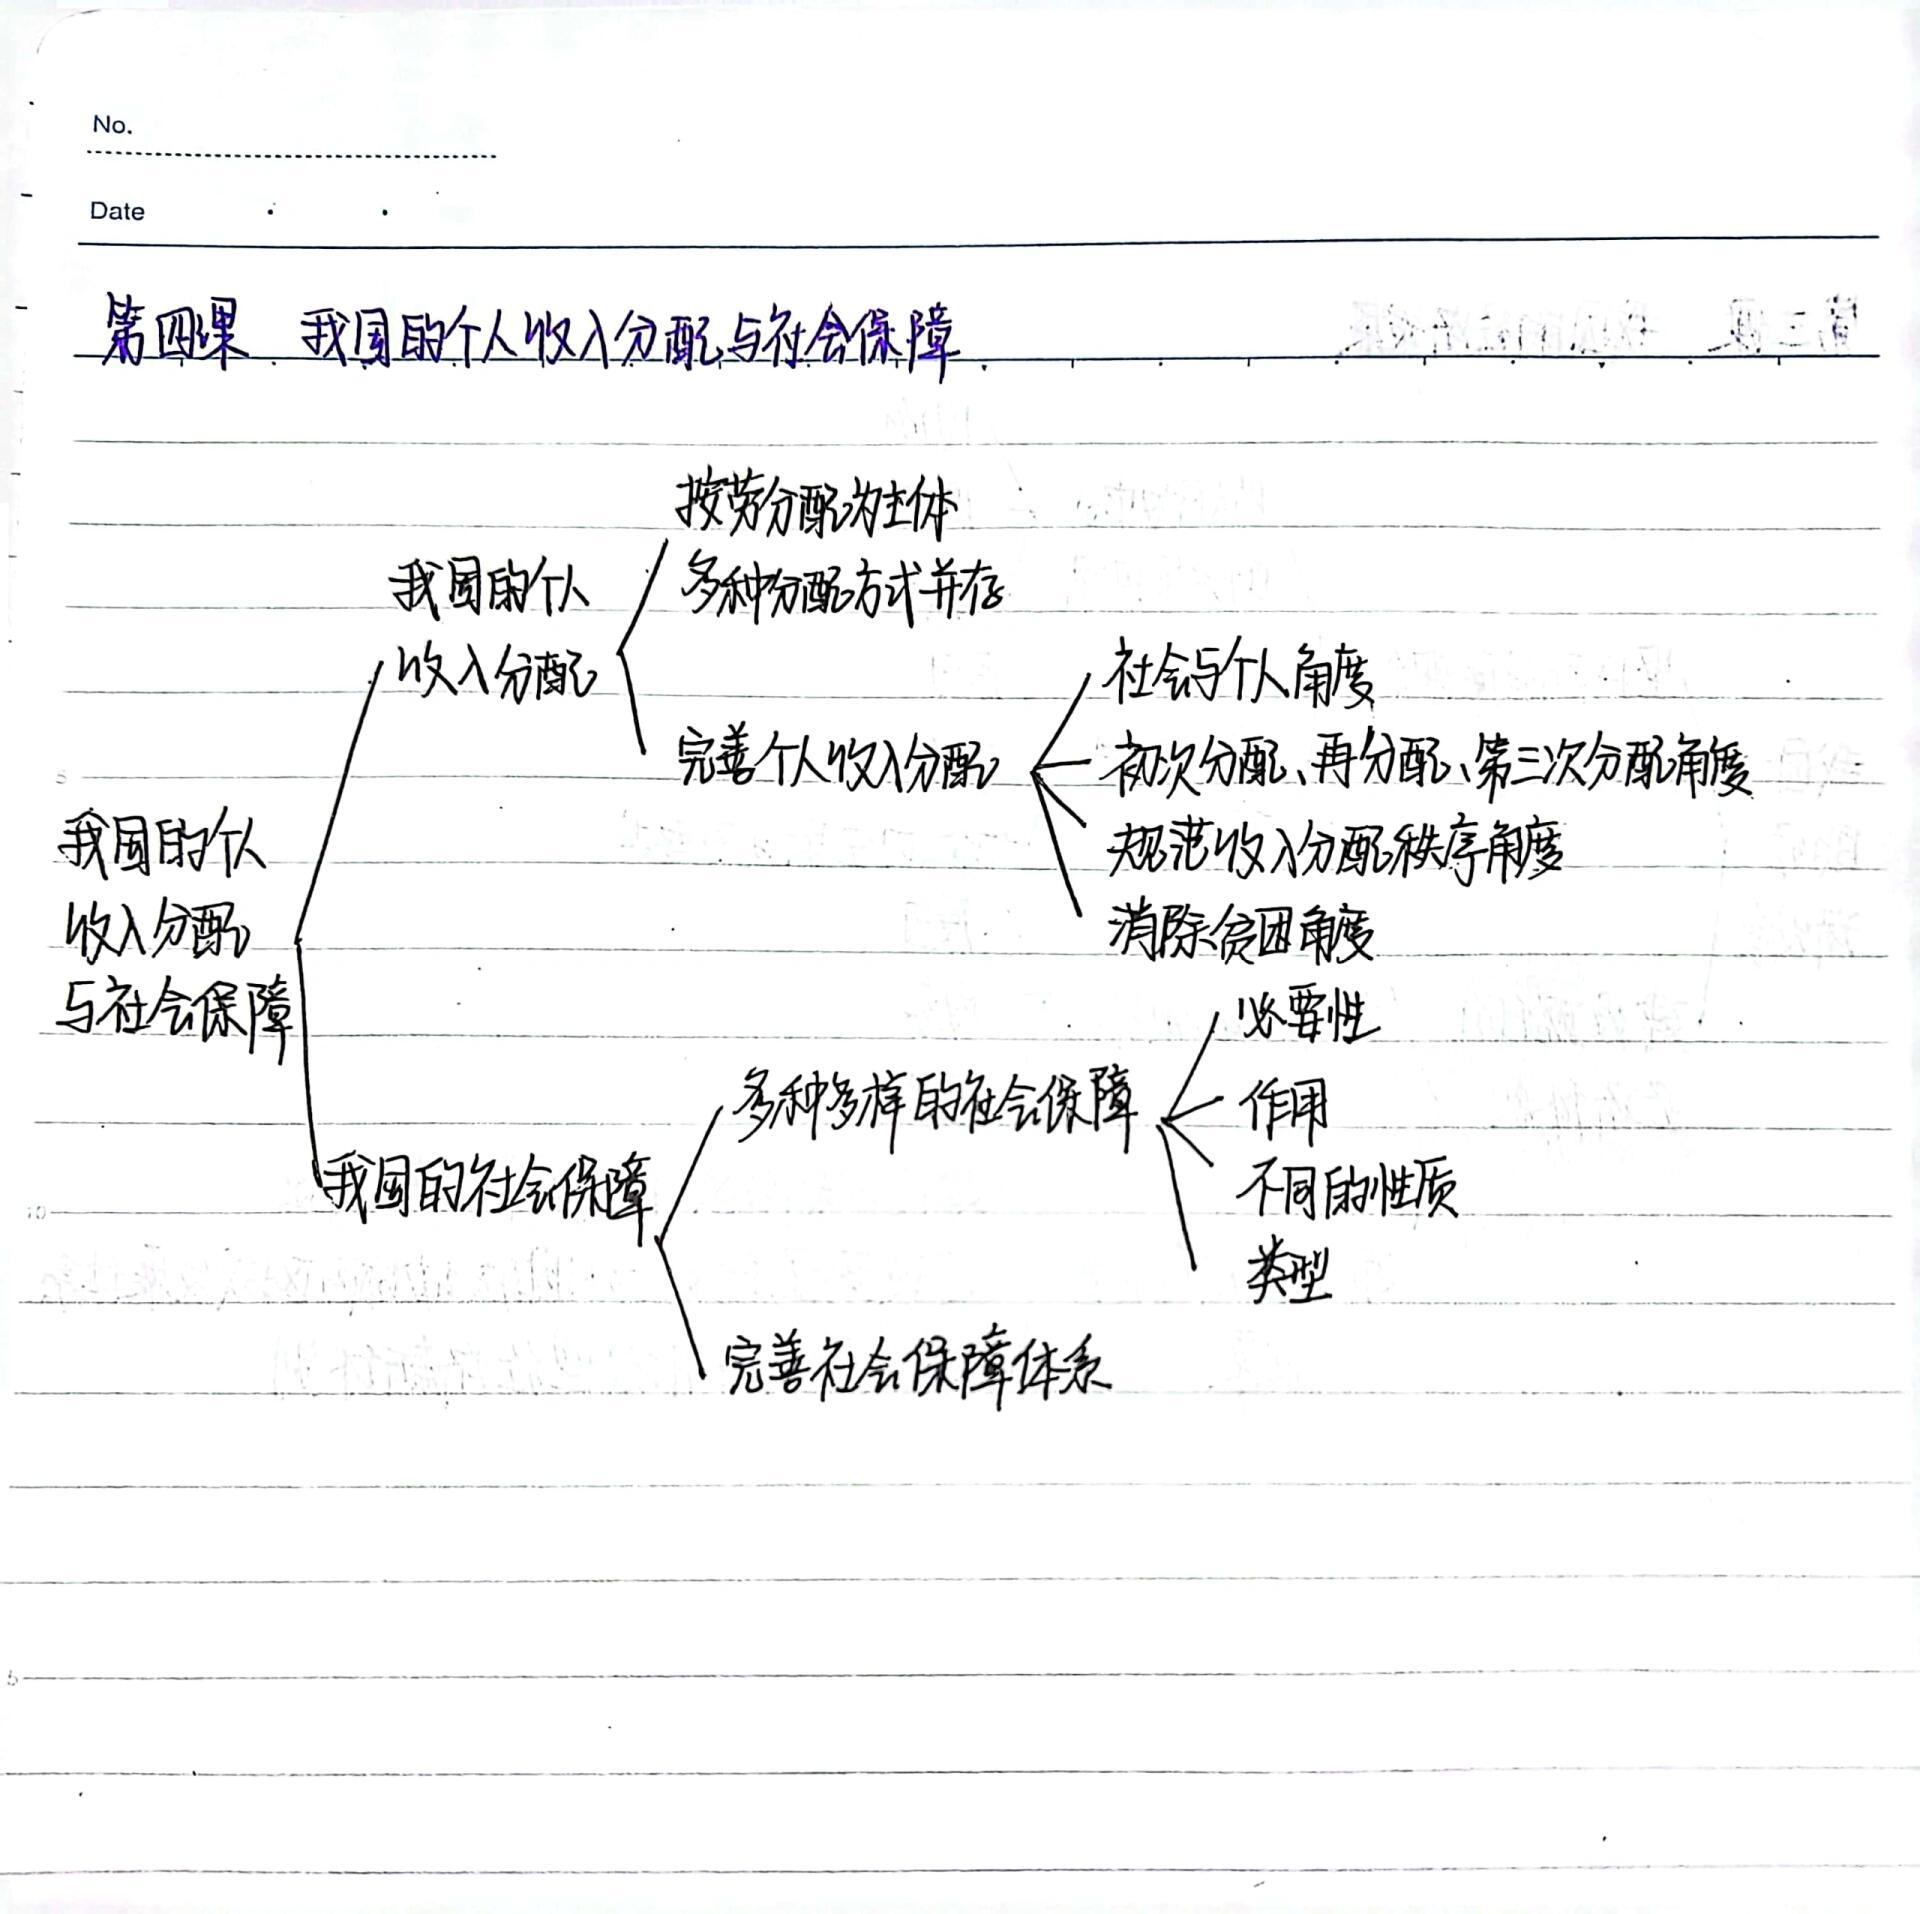 No.
Date
第四课 我国的个人收入分配与社会保障
按劳分配为主体
多种分配方式并存
我国的个人
收入分配
社会与个人角度
完善个人收入分配
初次分配、再分配、第三次分配角度
规范收入分配秩序角度
消除贫困角度
我国的个人
收入分配
与社会保障
必要性
多种多样的社会保障
作用
不同的性质
类型
我国的社会保障
完善社会保障体系